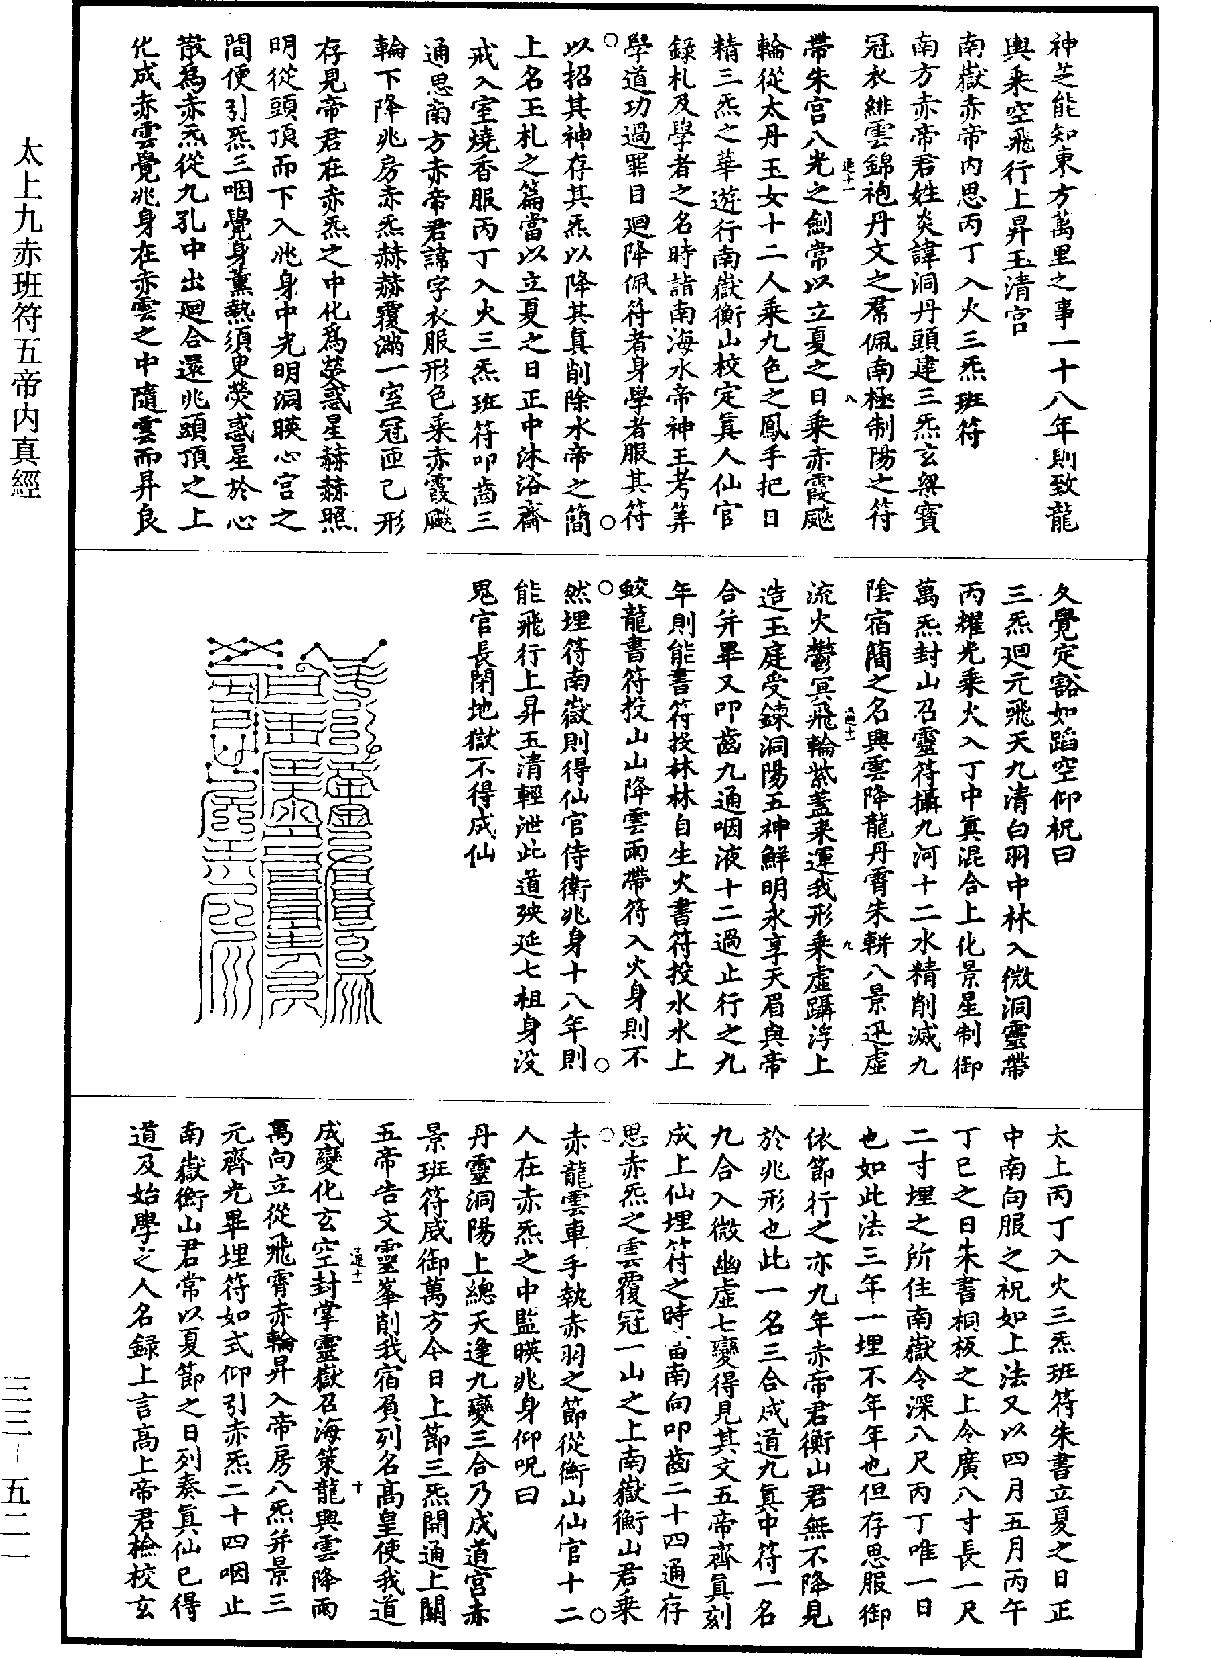 神芝能知東方萬里之事一十八年則致龍
輿乘空飛行上昇玉清宮
南嶽赤帝內思丙丁入火三炁班符
南方赤帝君姓炎諱洞丹頭建三炁玄無寶
冠衣緋雲錦袍丹文之帬佩南極制陽之符
帶朱宮八光之劍常以立夏之日乘赤霞飈
輪從太丹玉女十二人乘九色之鳳手把日
精三炁之華遊行南嶽衡山校定真人仙官
錄札及學者之名時詣南海水帝神王考筭
學道功過罪目廻降佩符者身學者服其符
以招其神存其炁以降其真削除水帝之簡
上名玉札之篇當以立夏之日正中沐浴齋
戒入室燒香服丙丁入火三炁班符叩齒三
通思南方赤帝君諱字衣服形色乘赤霞飈
輪下降兆房赤炁赫赫覆滿一室冠匝己形
存見帝君在赤炁之中化為熒惑星赫赫照
明從頭頂而下入兆身中光明洞暎心宮之
間便引炁三咽覺身薰熱須臾熒惑星於心
散為赤炁從九孔中出廻合還兆頭頂之上
化成赤雲覺兆身在赤雲之中隨雲而昇良
久覺定豁如蹈空仰祝曰
三炁廻元飛天九清白羽中林入微洞靈帶
丙耀光乘火入丁中真混合上化景星制御
萬炁封山召靈符攝九河十二水精削滅九
陰宿簡之名興雲降龍丹霄朱輧八景迅虛
流火鬱冥飛輪紫蓋來運我形乘虛躡浮上
造玉庭受鍊洞陽五神鮮明永享天眉與帝
合并畢又叩齒九通咽液十二過止行之九
年則能書符投林林自生火書符投水水上
鮫龍書符投山山降雲雨帶符入火身則不
然埋符南嶽則得仙官侍衛兆身十八年則
能飛行上昇玉清輕泄此道殃延七祖身沒
鬼官長閉地獄不得成仙
太上丙丁入火三炁班符朱書立夏之日正
中南向服之祝如上法又以四月五月丙午
丁巳之日朱書桐板之上令廣八寸長一尺
二寸埋之所住南嶽令深八尺丙丁唯一日
也如此法三年一埋不年年也但存思服御
依節行之亦九年赤帝君衡山君無不降見
於兆形也此一名三合成道九真中符一名
九合入微幽虛七變得見其文五帝齊真刻
成上仙埋符之時當南向叩齒二十四通存
思赤炁之雲覆冠一山之上南嶽衡山君乘
赤龍雲車手執赤羽之節從衡山仙官十二
人在赤炁之中監暎兆身仰呪曰
丹靈洞陽上總天逵九變三合乃成道宮赤
景班符威御萬方今日上節三炁開通上關
五帝告文靈峯削我宿負列名高皇使我道
成變化玄空封掌靈嶽召海策龍興雲降雨
萬向立從飛霄赤輪昇入帝房八炁并景三
元齊光畢埋符如式仰引赤炁二十四咽止
南嶽衡山君常以夏節之日列奏真仙已得
道及始學之人名錄上言高上帝君檢校玄
太上九赤班符五帝內真經
三三-五二一